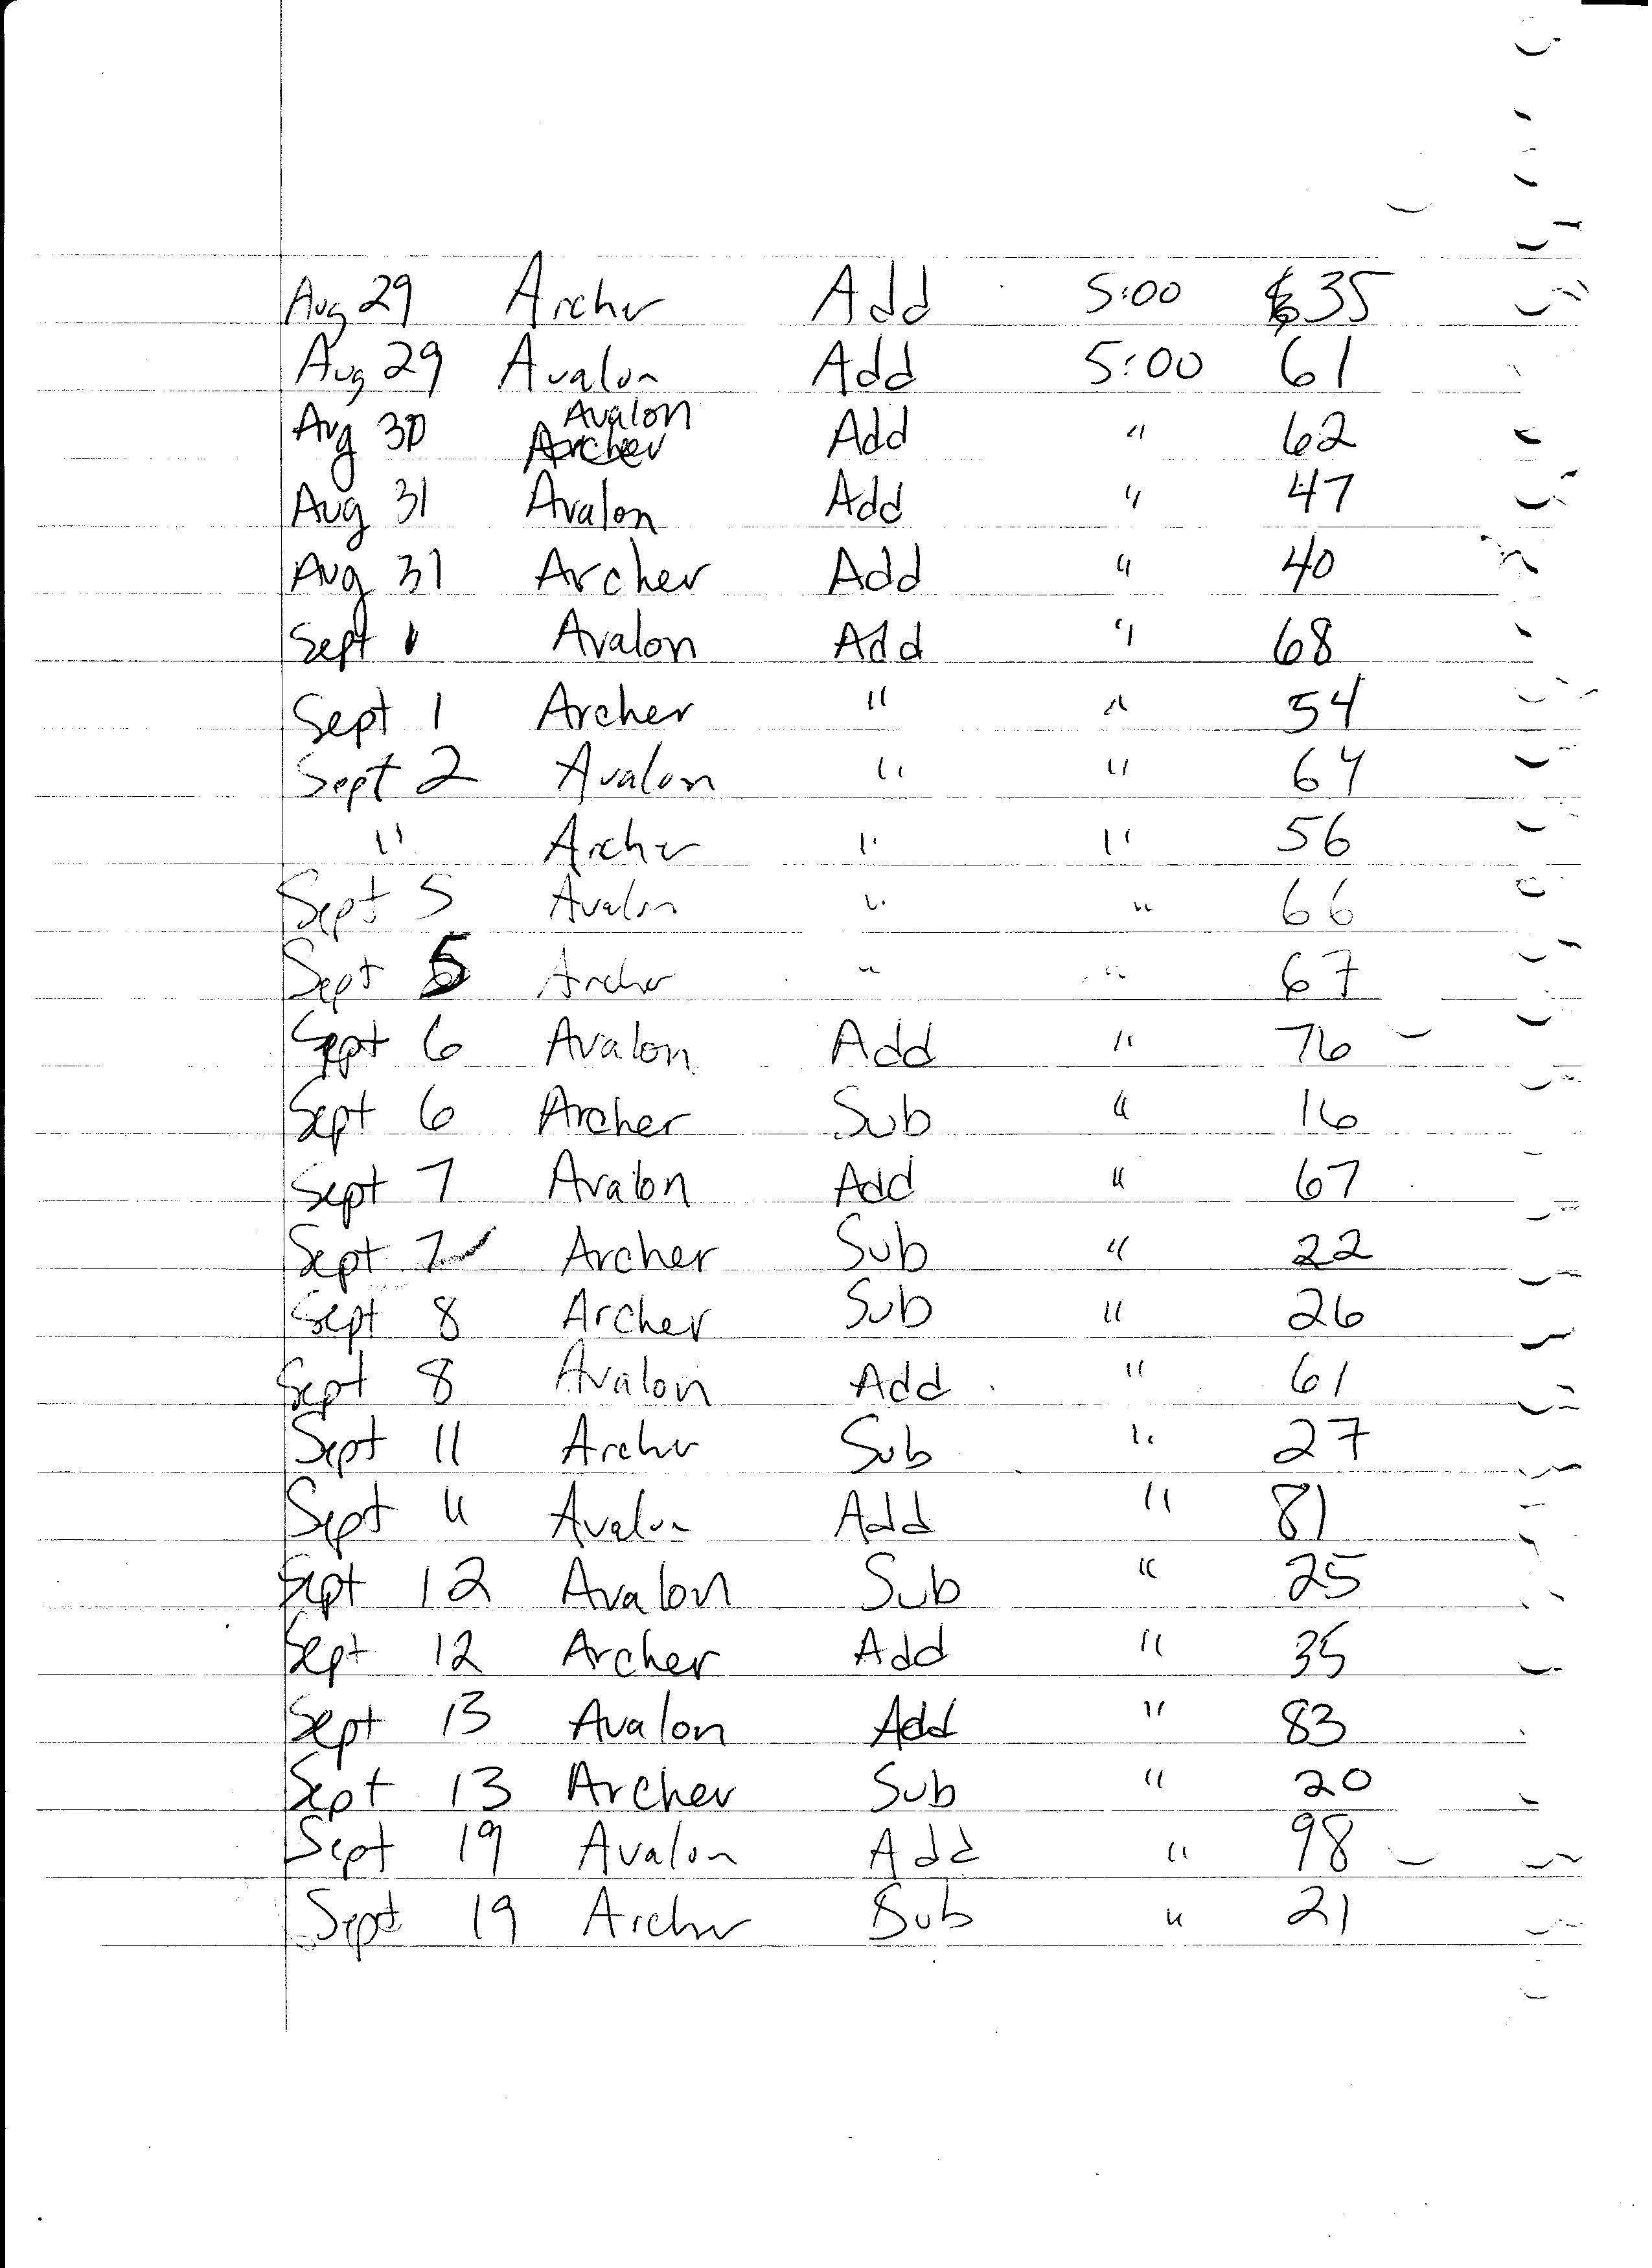 Aug 29 Archer Add 5:00 35
Aug 29 Avalon Add 5:00 61
Aug 30 Avalon Archer Add " 62
Aug 31 Avalon Add " 47
Aug 31 Archer Add " 40
Sept 1 Avalon Add " 68
Sept 1 Archer " " 54
Sept 2 Avalon " " 64
" Archer " " 56
Sept 5 Avalon " " 66
Sept 5 Archer " " 67
Sept 6 Avalon Add " 76
Sept 6 Archer Sub " 16
Sept 7 Avalon Add " 67
Sept 7 Archer Sub " 22
Sept 8 Archer Sub " 26
Sept 8 Avalon Add " 61
Sept 11 Archer Sub " 27
Sept 11 Avalon Add " 81
Sept 12 Avalon Sub " 25
Sept 12 Archer Add " 35
Sept 13 Avalon Add " 83
Sept 13 Archer Sub " 20
Sept 19 Avalon Add " 98
Sept 19 Archer Sub " 21